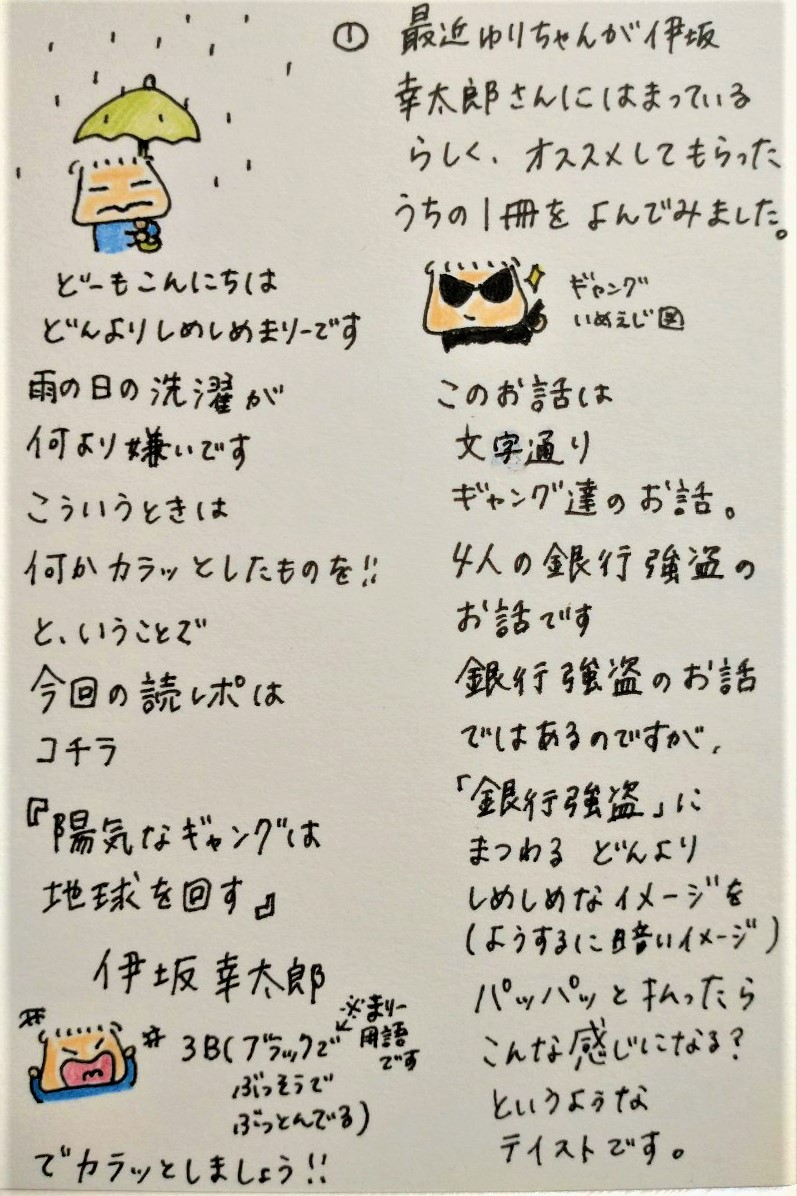 どーもこんにちは
どんよりしめしめまりーです
雨の日の洗濯が
何より嫌いです
こういうときは
何かカラッとしたものを!!
と、いうことで
今回の読レポは
コチラ
『陽気なギャングは
地球を回す』
伊坂幸太郎
3B(ブラックで
ぶっそうで
ぶっとんでる)
※まりー
用語
です
でカラッとしましょう!!
① 最近ゆりちゃんが伊坂
幸太郎さんにはまっている
らしく、オススメしてもらった
うちの1冊をよんでみました。
ギャング
いめえじ図
このお話は
文字通り
ギャング達のお話。
4人の銀行強盗の
お話です
銀行強盗のお話
ではあるのですが、
「銀行強盗」に
まつわる どんより
しめしめなイメージを
(ようするに暗いイメージ)
パッパッと払ったら
こんな感じになる?
というような
テイストです。